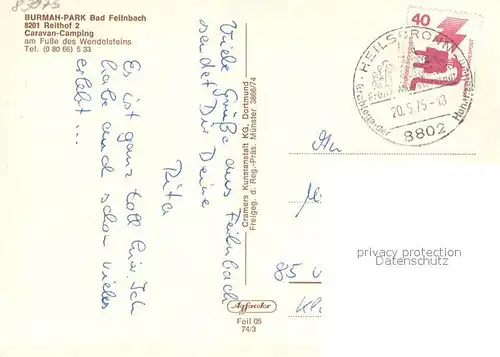 83075
BURMAH-PARK Bad Feilnbach
8201 Reithof 2
Caravan-Camping
am Fuße des Wendelsteins
Tel. (0 80 66) 5 33
Viele Grüße aus Feilnbach
sendet Dir Deine
Rita
Es ist ganz toll hier. Ich
habe auch schon vieles
erlebt...
Cramers Kunstanstalt KG, Dortmund
Freigeg. d. Reg.-Präs. Münster 3866/74
Agfacolor
Feil 05
74/3
40
HEILSBRONN
20.5.75-18
8802
An
85
privacy protection
Datenschutz